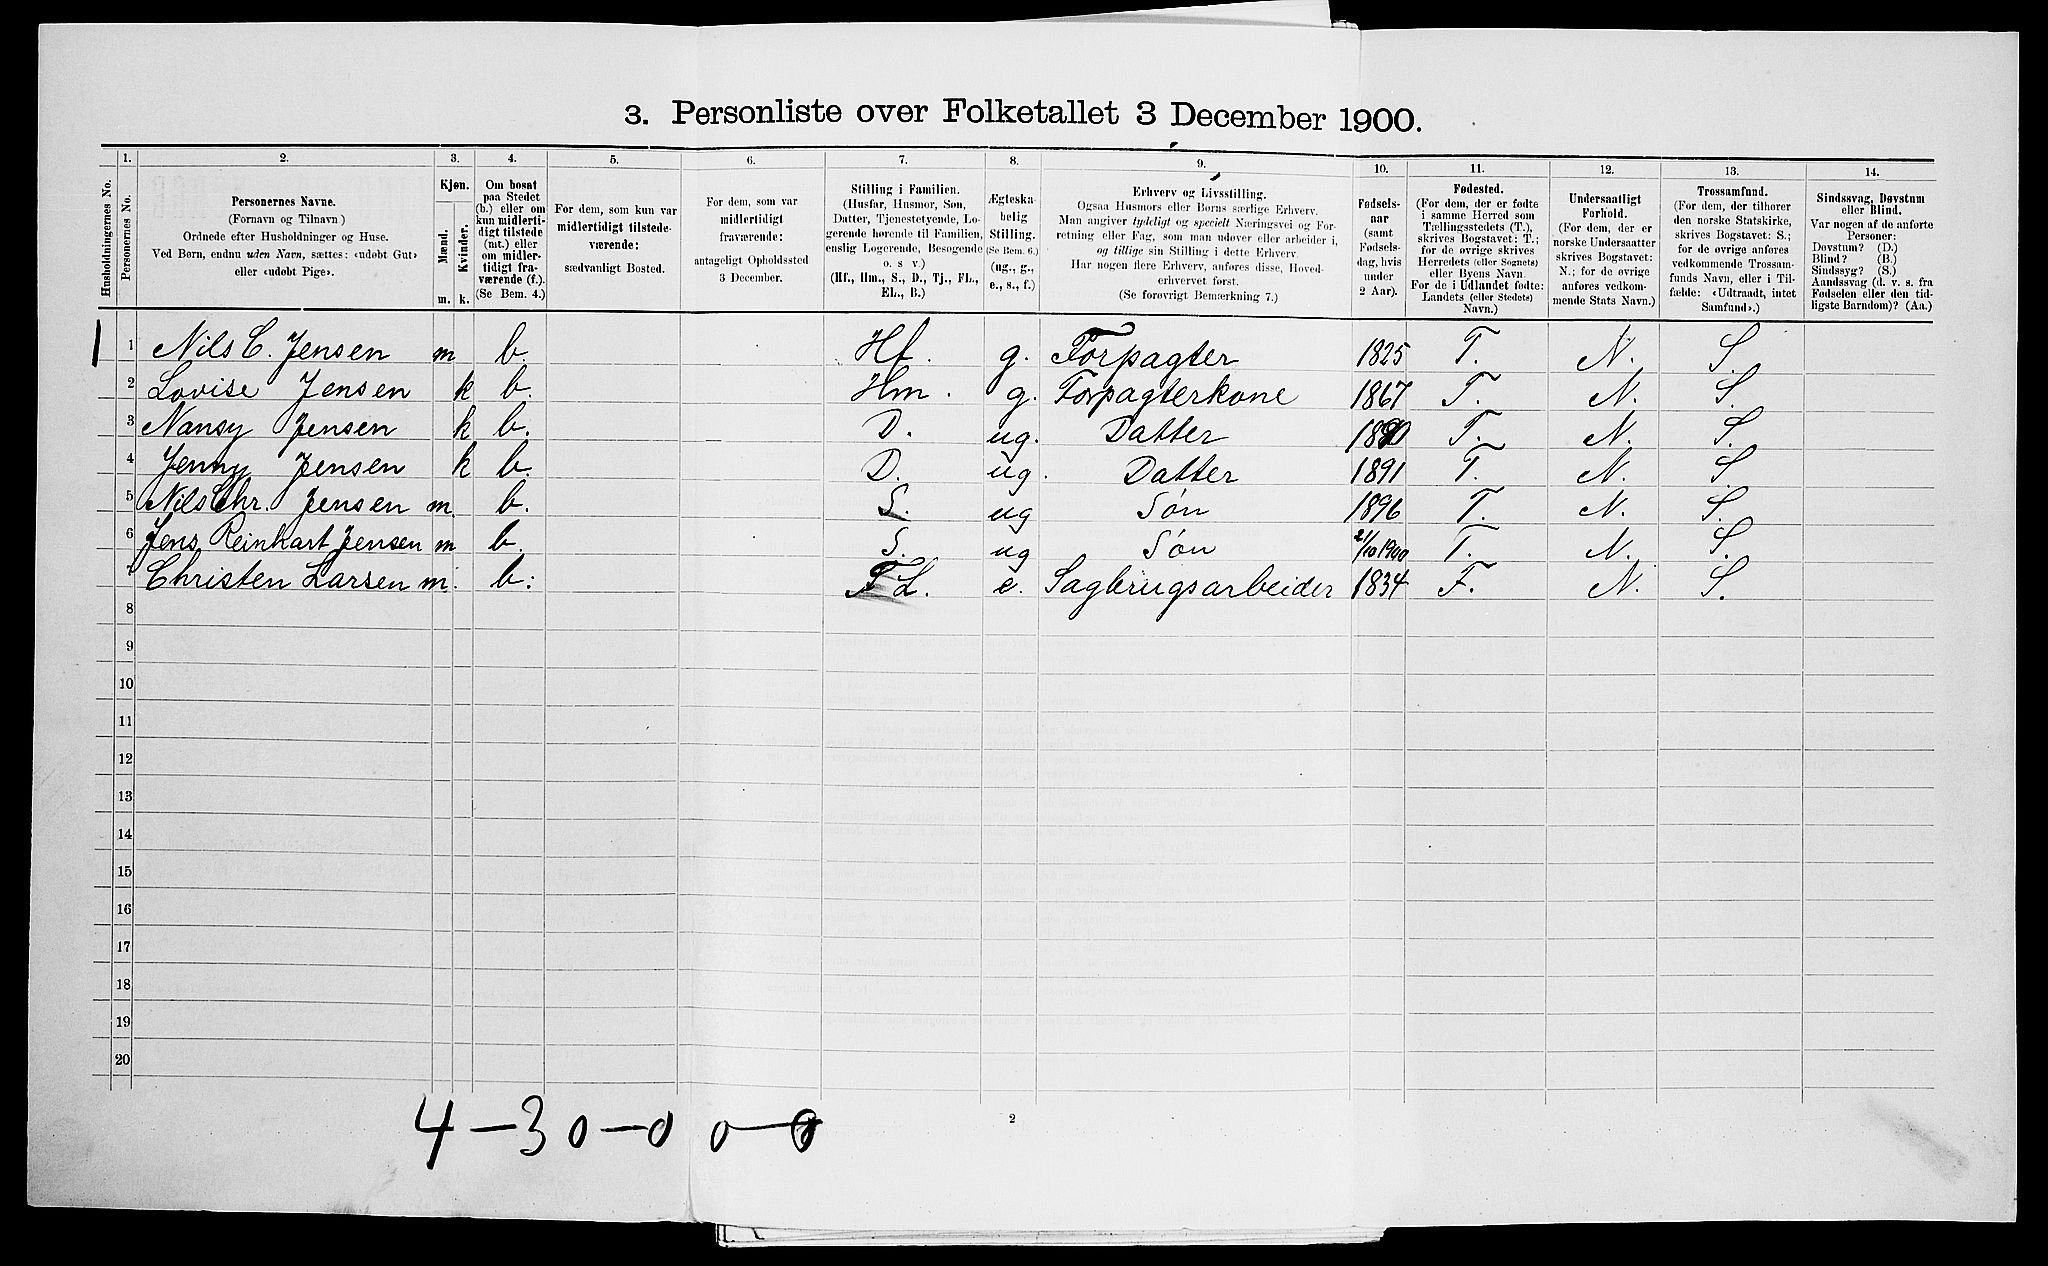 3. Personliste over Folketallet 3 December 1900.
1. 2. 3. 4. 5. 6. 7. 8. 9. 10. 11. 12. 13. 14.
Husholdningernes No.
Personernes No.
Personernes Navne.
(Fornavn og Tilnavn)
Ordnede efter Husholdninger og Huse.
Ved Børn, endnu uden Navn, sættes: «udøbt Gut»
eller «udøbt Pige».
Kjøn.
Mænd.
Kvinder.
m. k.
Om bosat
paa Stedet
(b.) eller om
kun midlerti-
digt tilstede
(mt.) eller
om midler-
tidigt fra-
værende (f.).
(Se Bem. 4.)
For dem, som kun var
midlertidigt tilstede-
værende:
sædvanligt Bosted.
For dem, som var
midlertidigt
fraværende:
antageligt Opholdssted
3 December.
Stilling i Familien.
(Husfar, Husmor, Søn,
Datter, Tjenestetyende, Lo-
gerende hørende til Familien,
enslig Logerende, Besøgende
o. s v.)
(Hf., Hm., S., D., Tj., FL.,
EL., B.)
Ægteska-
belig
Stilling.
(Se Bem. 6.)
(ug., g.,
e., s., f.)
Erhverv og Livsstilling.
Ogsaa Husmors eller Børns særlige Erhverv.
Man angiver tydeligt og specielt Næringsvei og For-
retning eller Fag, som man udøver eller arbeider i,
og tillige sin Stilling i dette Erhverv.
Har nogen flere Erhverv, anføres disse, Hoved-
erhvervet først.
(Se forøvrigt Bemærkning 7.)
Fødsels-
aar
(samt
Fødsels-
dag, hvis
under
2 Aar).
Fødested.
(For dem, der er fødte
i samme Herred som
Tællingsstedets (T.),
skrives Bogstavet: T.;
for de øvrige skrives
Herredets (eller Sognets)
eller Byens Navn.
For de i Udlandet fødte:
Landets (eller Stedets)
Navn.)
Undersaatligt
Forhold.
(For dem, der er
norske Undersaatter
skrives Bogstavet:
N.; for de øvrige
anføres vedkom-
mende Stats Navn.)
Trossamfund.
(For dem, der tilhører
den norske Statskirke,
skrives Bogstavet: S.;
for de øvrige anføres
vedkommende Trossam-
funds Navn, eller i Til-
fælde: «Udtraadt, intet
Samfund».)
Sindssvag, Døvstum
eller Blind.
Var nogen af de anførte
Personer:
Døvstum? (D.)
Blind? (B.)
Sindssyg? (S.)
Aandssvag (d. v. s. fra
Fødselen eller den tid-
ligste Barndom)? (Aa.)
1 1 Nils C. Jensen m b. Hf. g. Forpagter 1825 T. N. S.
2 Lovise Jensen k b. Hm. g. Forpagterkone 1867 T. N. S.
3 Nansy Jensen k b. D. ug. Datter T. N. S.
4 Jenny Jensen k b. D. ug. Datter 1891 T. N. S.
5 Nils Chr. Jensen m. b. S. ug Søn 1896 T. N. S.
6 Jens Reinhart Jensen m b. S. ug Søn 21/10 1900 T. N. S.
7 Christen Larsen m. b. FL. e. Sagbrugsarbeider 1834 F. N. S.
8
9
10
11
12
13
14
15
16
17
18
19
20
4-30-0 0-0
2